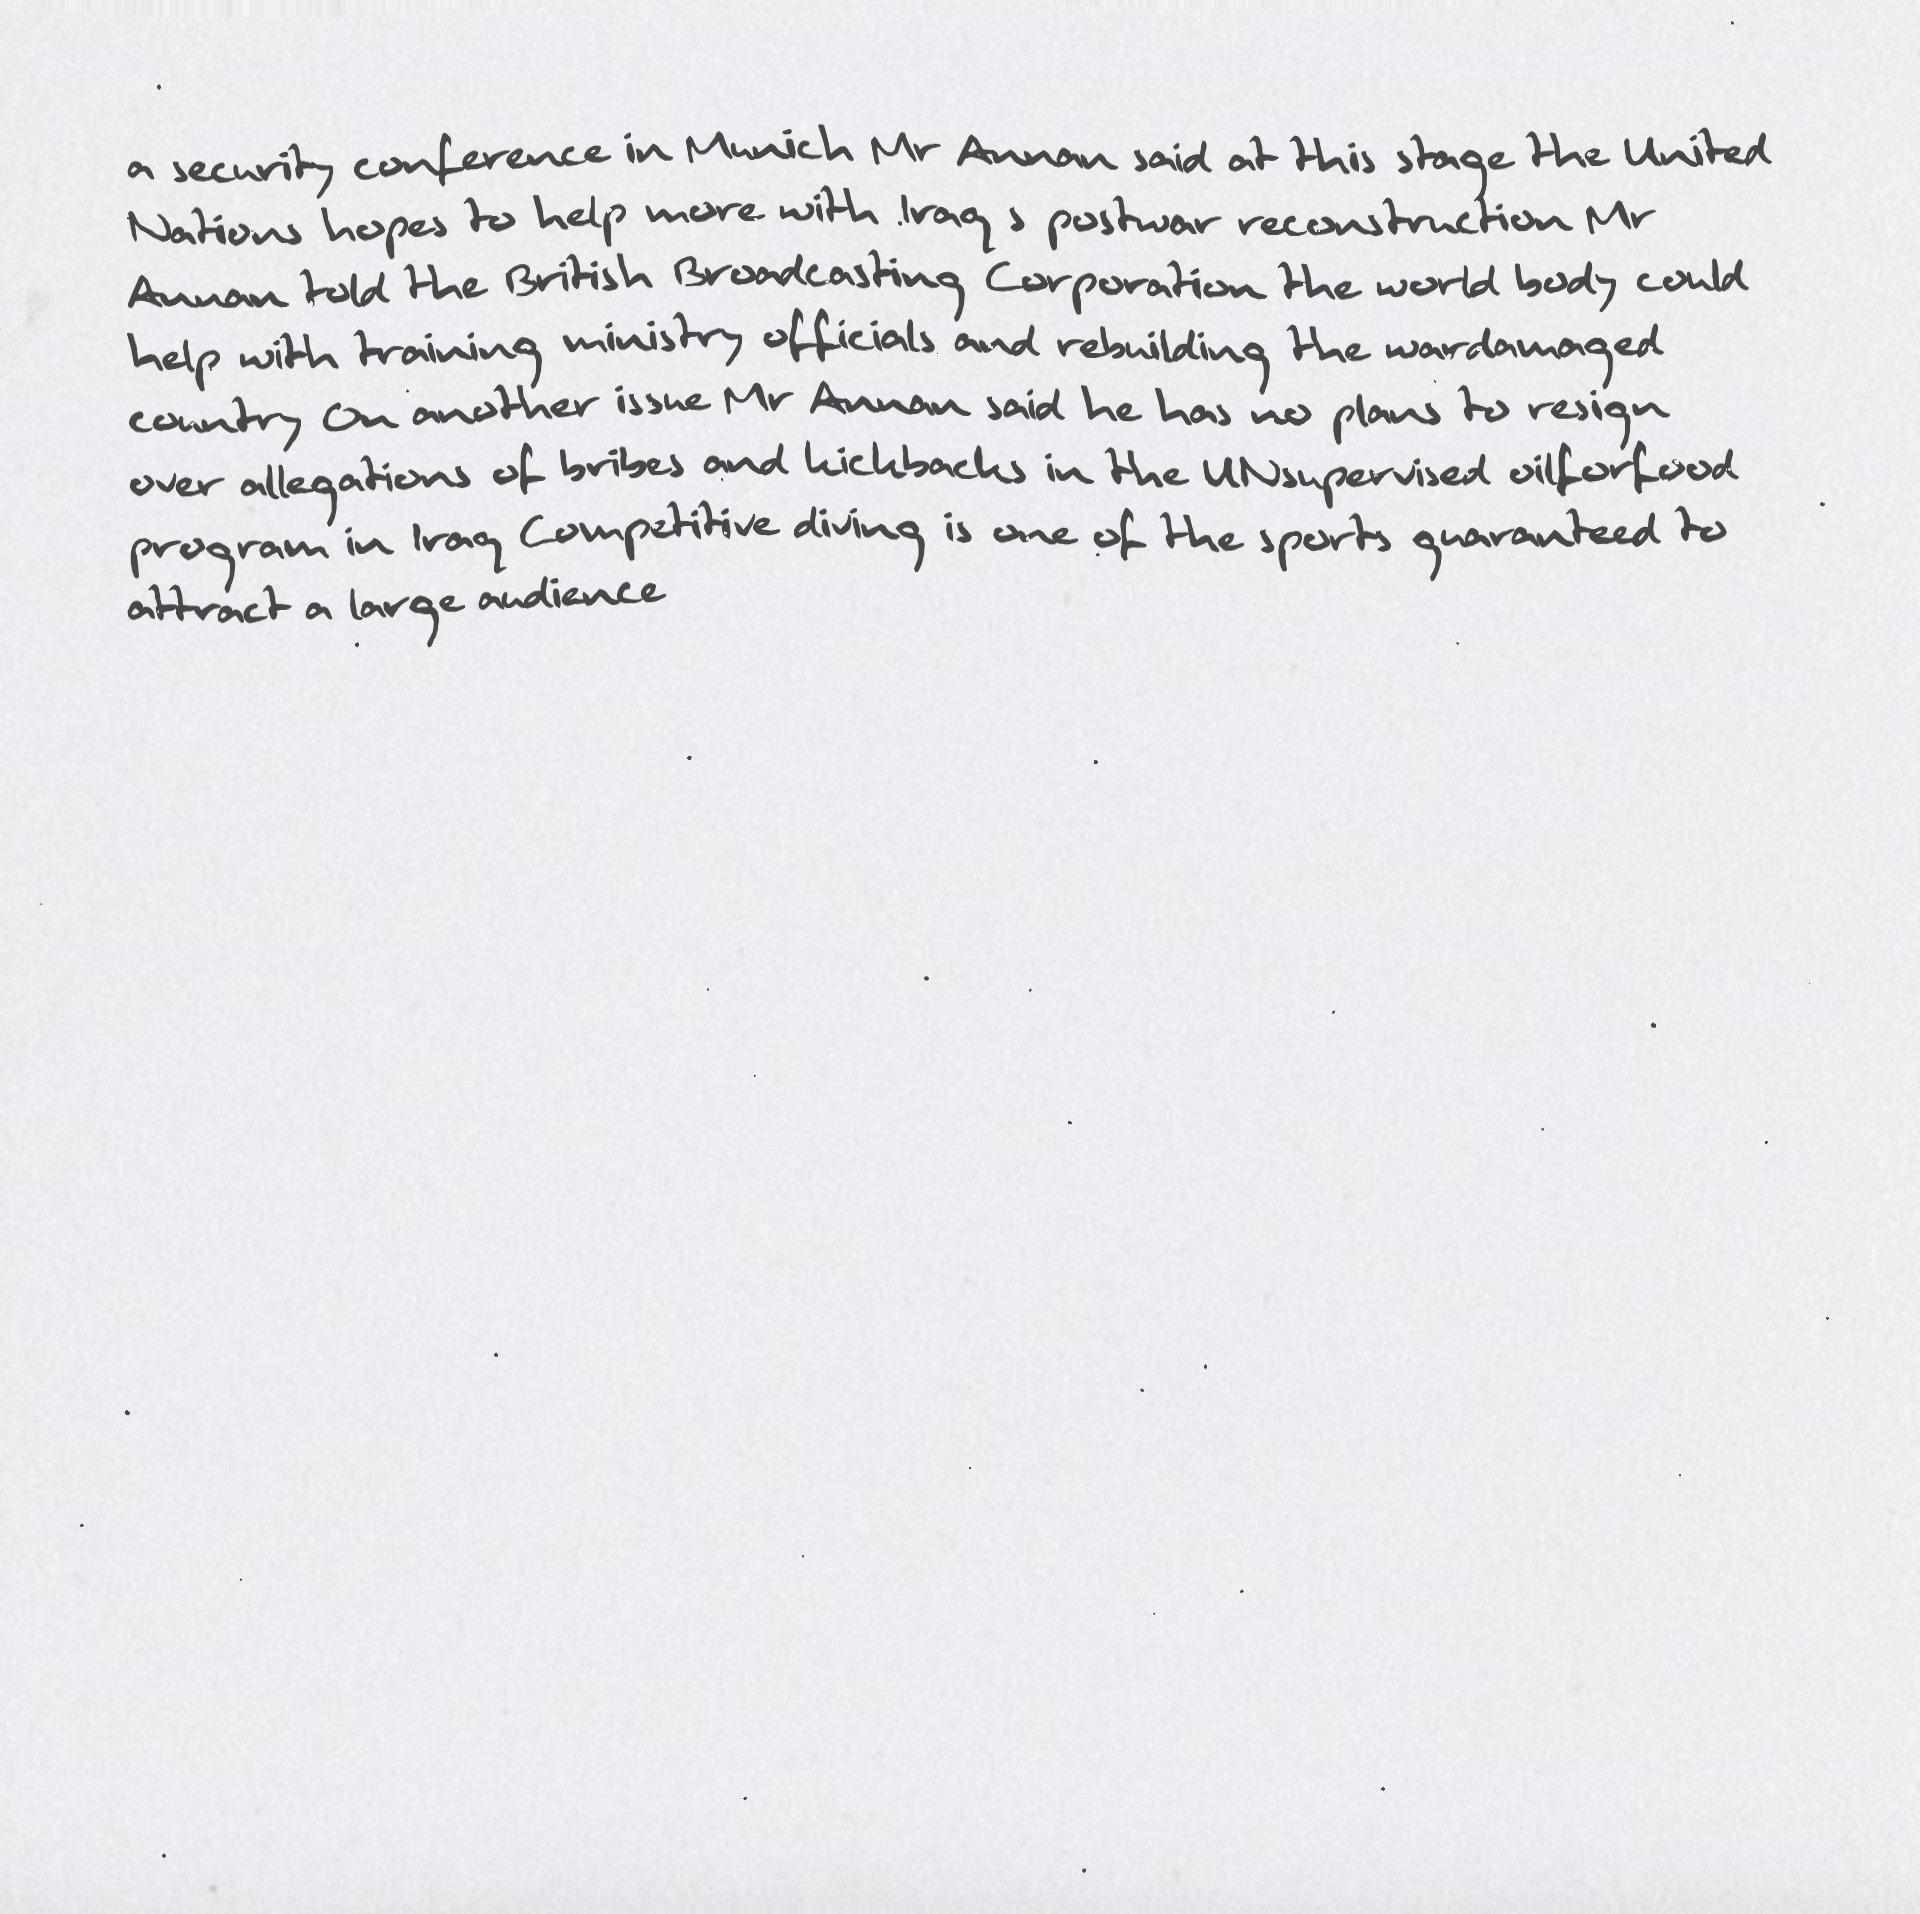 a security conference in Munich Mr Annan said at this stage the United
Nations hopes to help more with Iraq s postwar reconstruction Mr
Annan told the British Broadcasting Corporation the world body could
help with training ministry officials and rebuilding the wardamaged
country On another issue Mr Annan said he has no plans to resign
over allegations of bribes and kickbacks in the UNsupervised oilforfood
program in Iraq Competitive diving is one of the sports guaranteed to
attract a large audience